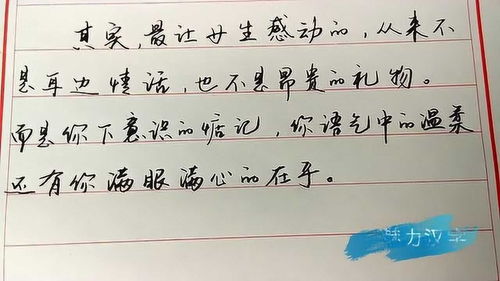 其实,最让女生感动的,从来不
是耳边情话,也不是昂贵的礼物。
而是你下意识的惦记,你语气中的温柔
还有你满眼满心的在乎。
魅力汉字